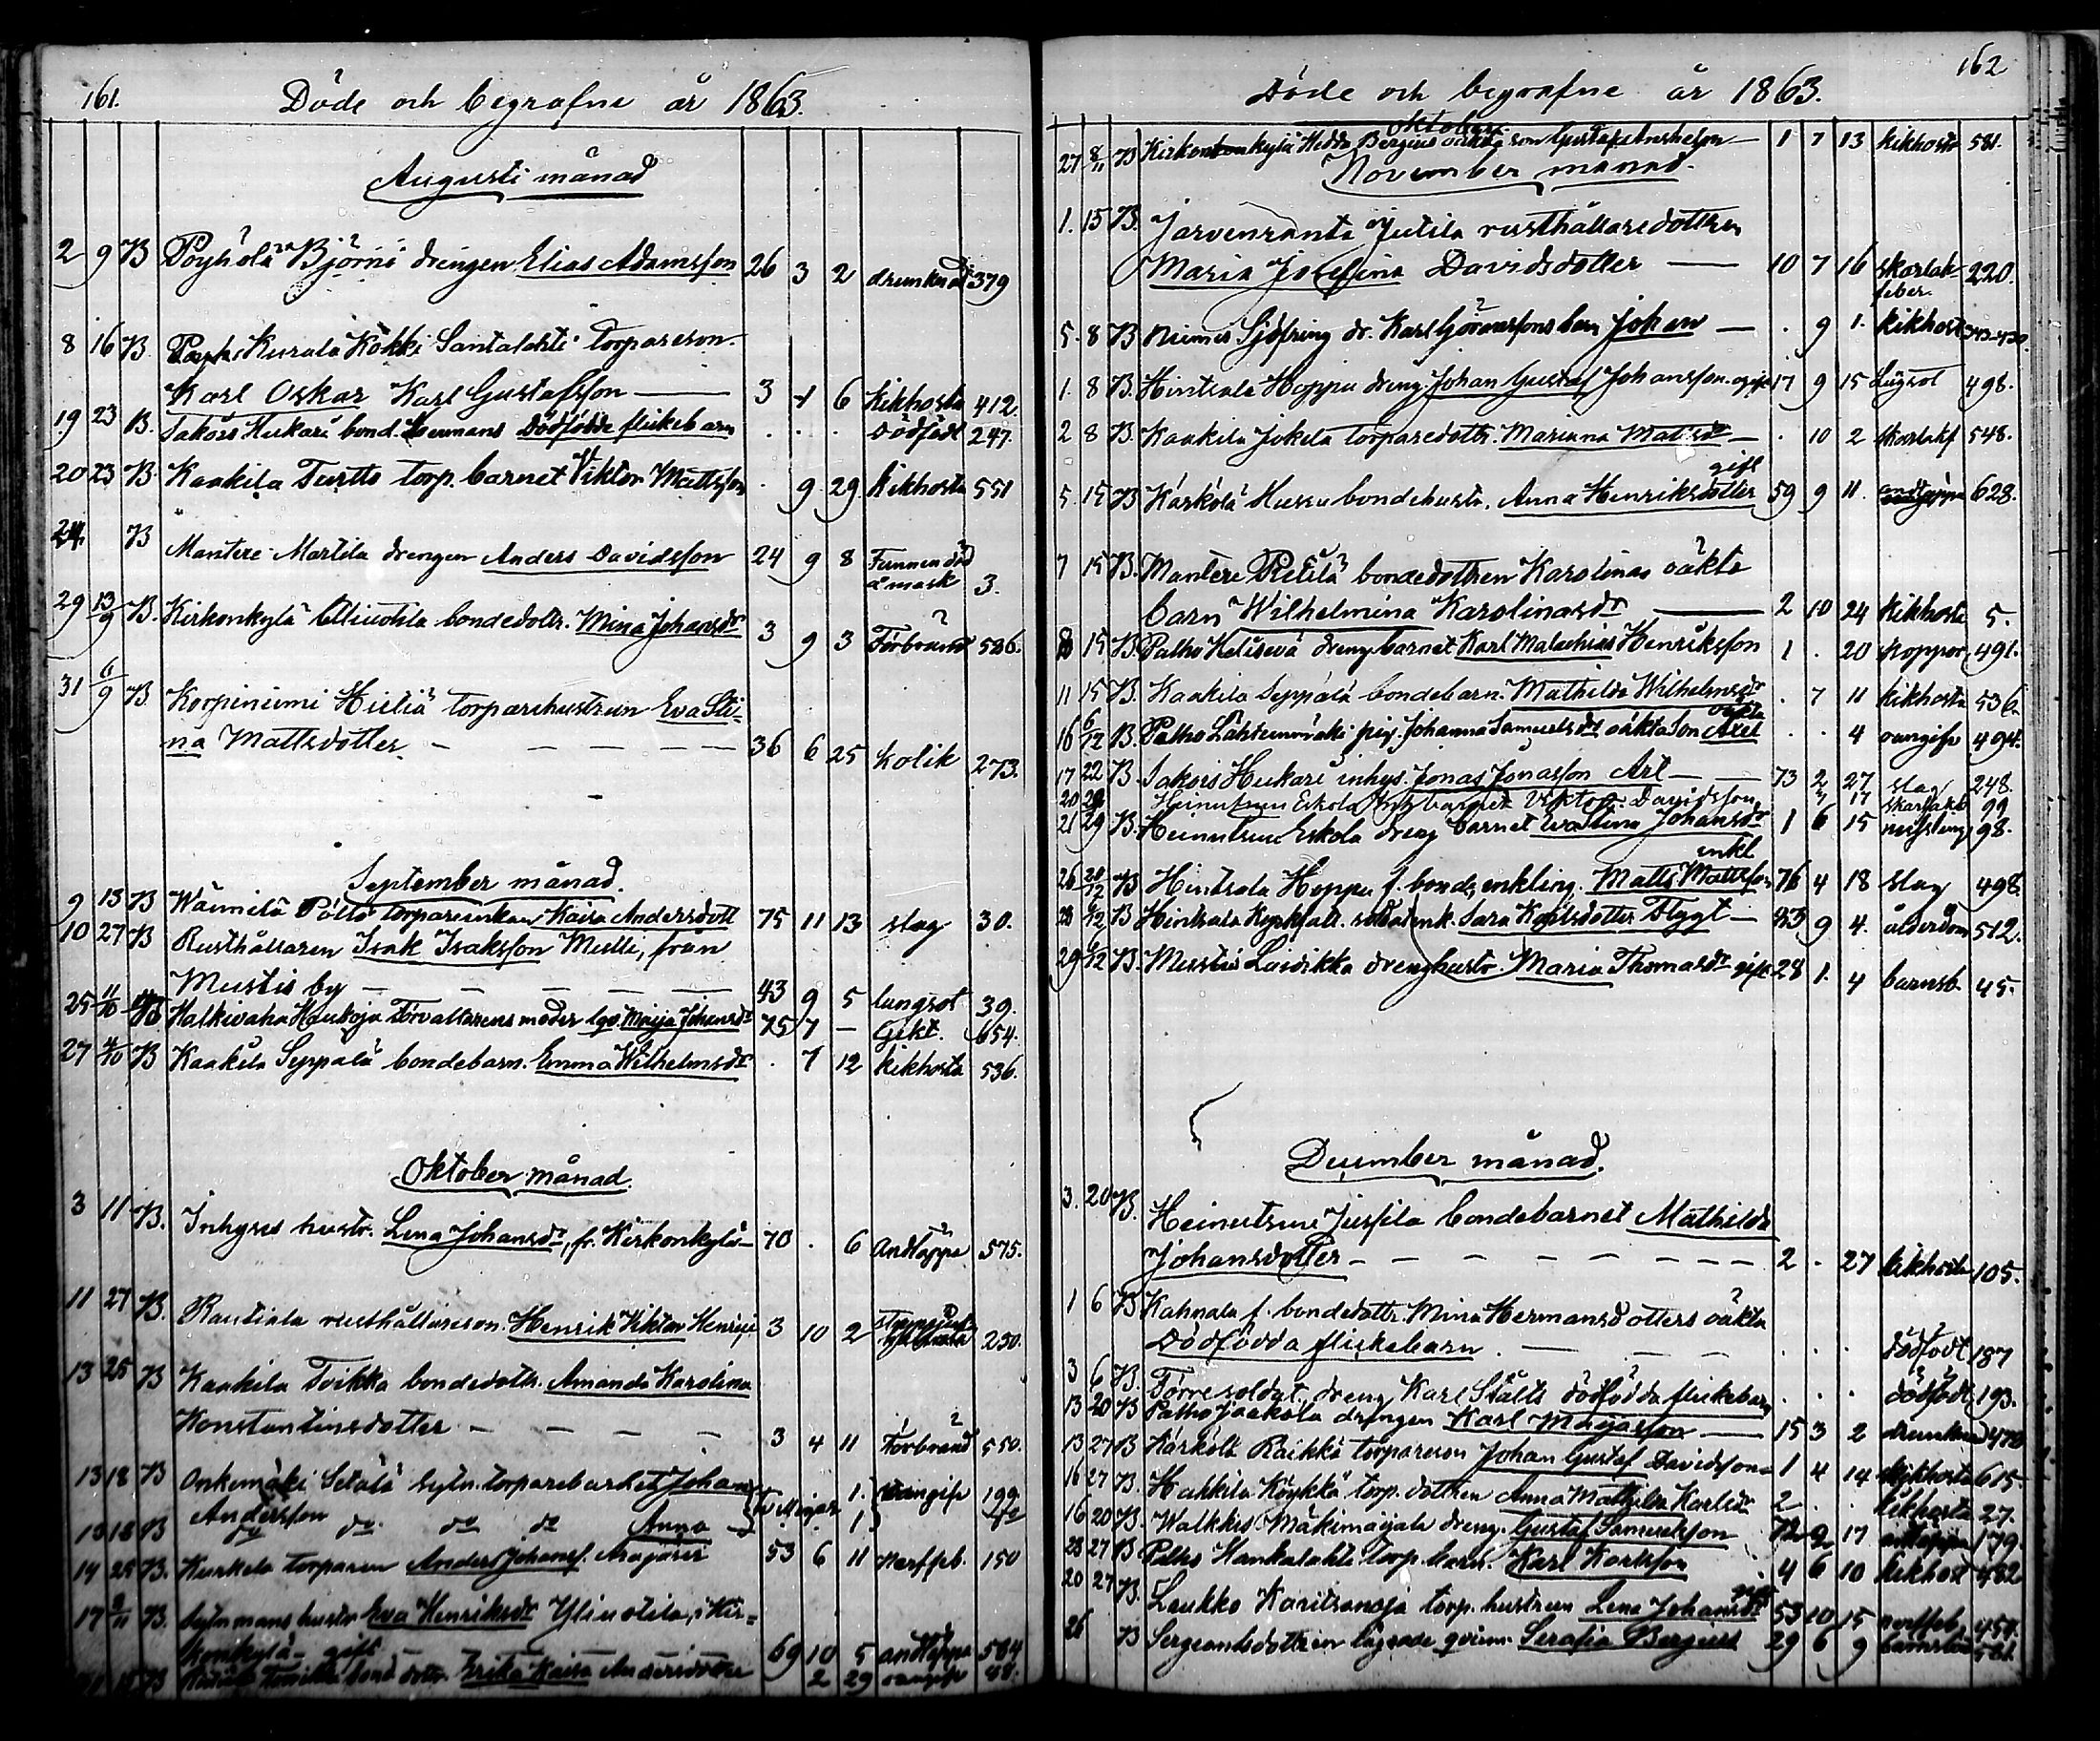 161.
Döde och begrafne år 1863.
Augusti månad
2 9 B Pöyhölä Björni drengen Elias Adamsson 26 3 2 drunknad 379
8 16 B. Kurala Kokki Santalahti torpareson
Karl Oskar Karl Gustafsson 3 6 Kikhosta 412.
19 23 B. Sakois Hukari bond. Hermans Dödfödde flickebarn . . . Dödfödt 247.
20 23 B. Kaakila Turtto torp. barnet Viktor Mattsson . 9 29 Kikhosta 551
24. B Mantere Martila drengen Anders Davidsson 24 9 8 Funnen död
å mark 3.
29 13/9 B. Kirkonkylä bondedottr. Mina Johansdr 3 9 3 Förbränd 586.
31 6/9 B. Korpiniemi torparehustrun Eva Sti-
na Mattsdotter 36 6 25 Kolik 273.
September månad.
9 13 B Wäinilä Pölló torpareenkan Kaisa Andersdott 75 11 13 slag 30.
10 27 B Rusthållaren Isak Isaksson Mulli, från
Mustis by 43 9 5 lungsot 39.
25 11/10 B Kalkivaha Haukoja Förvaltarens moder Maija Johansdr 75 7 — Gikt. 654.
27 4/10 B Kaakila Seppälä bondebarn. Emma Wilhelmsdr . 7 12 kikhosta 536.
Oktober månad.
3 11 B. Inhyses hustr. Lena Johansdr, fr. Kirkonkylä 70 . 6 Andtäppa 575.
11 27 B. Rautiala rusthållareson. Henrik Viktor Henriks 3 10 2 250.
13 25 B Kaakila Toikka bondedottr. Amanda Karolina
Konstantinsdotter 3 4 11 Förbränd 550.
13 18 B Onkemäki Setälä torparebarnet Johan
Andersson 1. oangifv 199
13 18 B do do do do Anna 1 do
14 25 B. Kurkela torparen Anders Johansf. 53 6 11 nerffeb. 150
17 8/11 B. hustr Eva Henriksdr Yliuotila, i Kir=
konkylä gift 69 10 5 andtäppa 584
B bond dottr. Erika Kaisa Andersdotter 2 29 oangifv 48.
162
Döde och begrafne år 1863.
Oktober
27 8/11 B Kirkonkylä Hedda Bergius oäkta son Gustaf Anshelm 1 7 13 kikhosta 581.
November månad.
1. 15 B. Jarvenranta Jutila rusthållaredottren
Maria Josefina Davidsdotter 10 7 16 skarlak-
feber. 220.
5. 8 B Niemis dr. Karl Göranssons barn Johan . 9 1. kikhosta
1. 8 B. Hintsala Hoppu dreng Johan Gustaf Johansson. ogift 17 9 15 Lugsot 498.
2 8 B. Kaakila Jokela torparedottr. Mariana Matsdr . 10 2 skarlakf 548.
5. 15 B Kärkölä Hussu bondehustr. Anna Henriksdotter gift 59 9 11. andtäppa 628.
7 15 B. Mantere Pietilä bondedottren Karolinas oäkta
barn Wilhelmina Karolinasdr 2 10 24 kikhosta 5.
8 15 B. Palho Ketiseva drengbarnet Karl Malachias Henriksson 1 . 20 koppor 491.
11 15 B. Kaakila Seppälä bondebarn. Mathilda Wilhelmsdr . 7 11 kikhosta 536
16 6/12 B. Palho Lähteenmäki pig. Johanna Samuelsdrs oäkta son . . 4 oangifv 494.
17 22 B. Sakois Hukari inhys. Jonas Jonasson Arl 73 2 27 slag 248.
20 29 Heinutsuu Eskola barnet Viktor Davidsson 17 skarlakf 99
21 29 B. Heinutsuu Eskola dreng barnet Eva Stina Johansdr 1 6 15 98.
26 20/12 B Hintsala Hoppu f. bond, enkling. Matts Mattsson enkl 76 4 18 slag 498.
28 6/12 B Hintsala soldatenk. Sara Karlsdotter Flygt 83 9 4. ålderdom 512.
29 6/12 B. Mustis Lusikka drenghustr. Maria Thomasdr gift 28 1. 4 barnsb. 45.
December månad.
3. 20 B. Heinutsuu Jussila bondebarnet Mathilda
Johansdotter 2 . 27 kikhosta 105.
1 6 B Kahnala f. bondedottr. Mina Hermansdotters oäkta
Dödfödda flickebarn . . . dödfödt 187
3 6 B. Torre soldat. dreng Karl Ståls dödfödda flickebarn . . . dödfödt 193.
13 20 B Palho Jaakola drengen Karl Majasson 15 3 2 drunknad 478
13 27 B Kärkölä Raikka torpareson Johan Gustaf Davidsson 1 4 14 kikhosta 615.
16 27 B. Hakkila Köykkä torp. dottren Anna Mathilda Karlsdr 2 . . kikhosta 27.
16 20 B. Walkkis Mäkimaijala dreng. Gustaf Samuelsson 72 2 17 andtäppa 179.
28 27 B Palho Hankalahti torp. barn. Karl Karlsson . 4 6 10 kikhost 482
20 27 B. Laukko Karitsanoja torp. hustrun Lena Johansdr gift 53 10 15 nerffeb. 450.
26 B Sergeantsdottren qvinn. Serafia Bergius 29 6 9 barnsbörd 581.